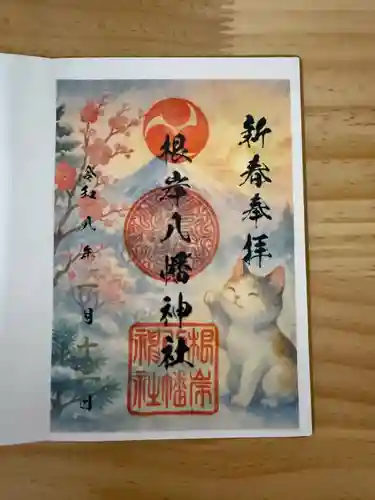 新春奉拝
根岸八幡神社
令和八年一月十一日
根岸
八幡
神社